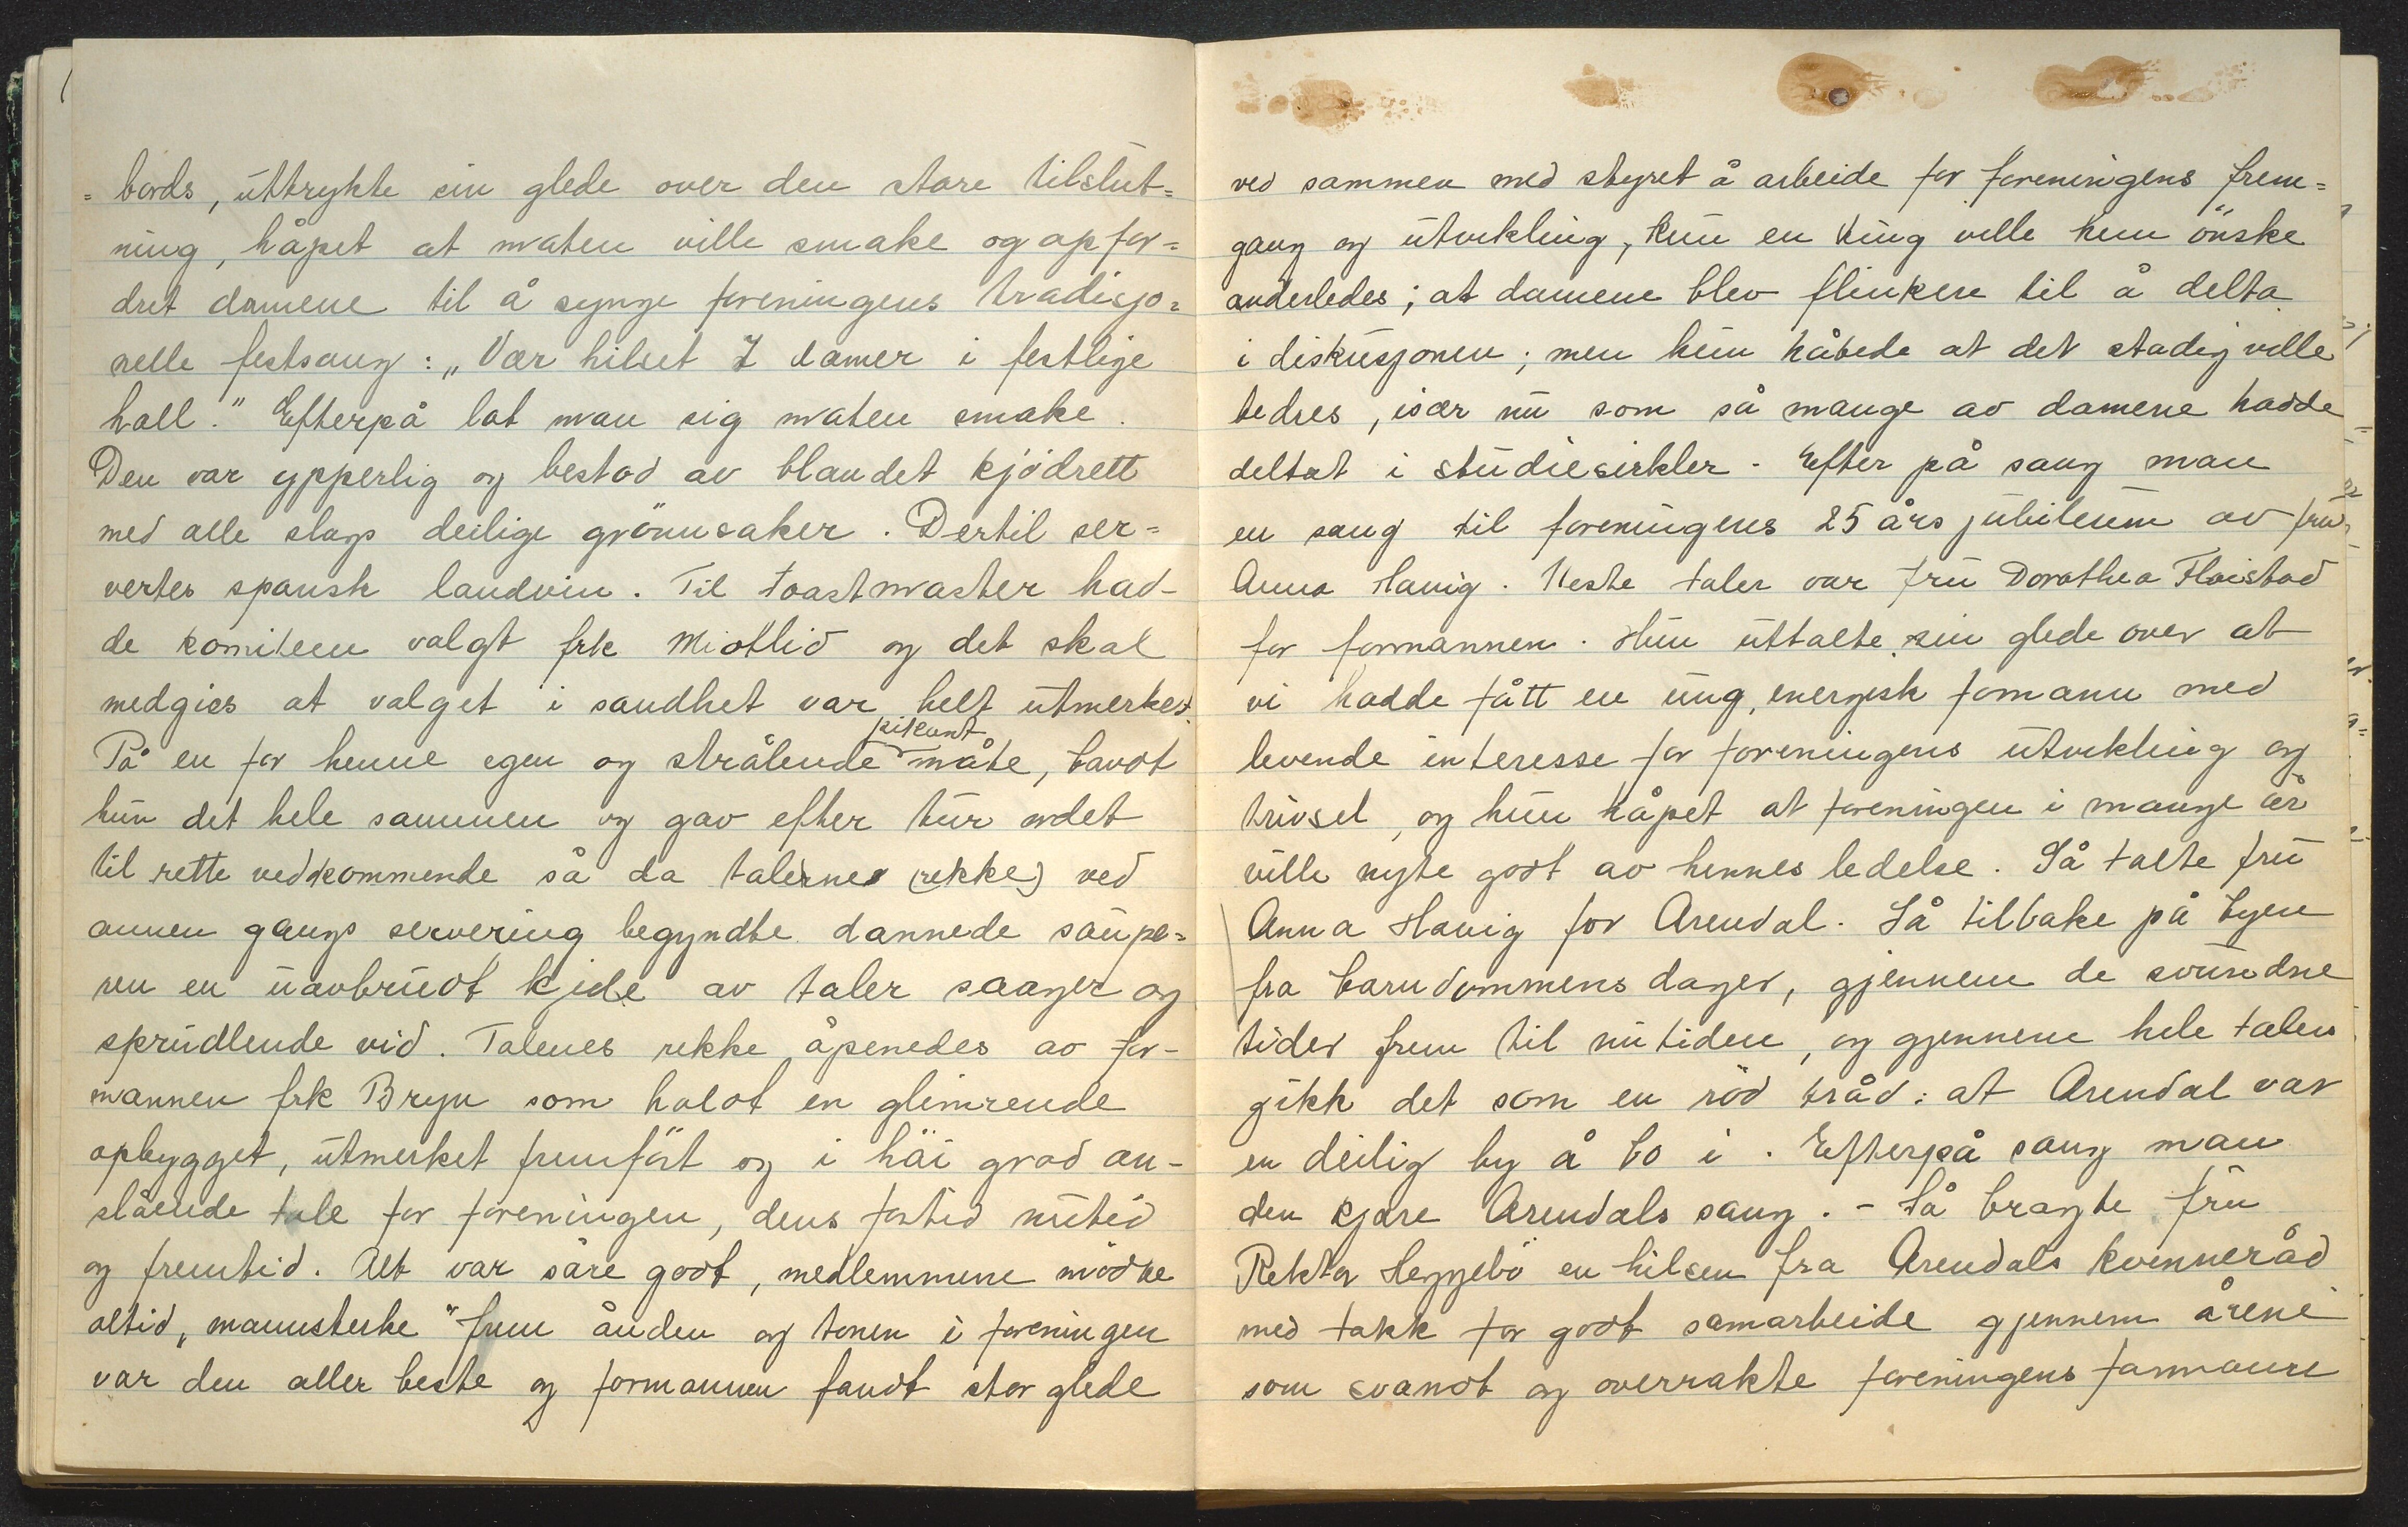 = bords, uttrykte sin glede over den store tilslut=
ning, håpet at maten ville smake og opfor=
dret damene til å synge foreningens tradisjo=
nelle festsang: „Vær hilset I damer i festlige
hall." Efterpå lot man sig maten smake.
Den var ypperlig og bestod av blandet kjödrett
med alle slags deilige grönnsaker. Dertil ser=
vertes spansk landvin. Til toastmaster had-
de komiteen valgt frk Miøtlid og det skal
medgies at valget i sandhet var helt utmerket.
pikant
På en for henne egen og strålende måte, bandt
hun det hele sammen og gav efter tur ordet
til rette vedkommende så da talernes (rekke) ved
annen gangs servering begyndte dannede saupe=
ren en uavbrudt kjede av taler sanger og
sprudlende vid. Talenes rekke åpenedes av for-
mannen frk Bryn som holdt en glimrende
opbygget, utmerket fremfört og i höi grad an-
slående tale for foreningen, dens fortid nutid
og fremtid. Alt var såre godt, medlemmene mödte
altid „mannsterke" frem ånden og tonen i foreningen
var den aller beste og formannen fandt stor glede
ved sammen med styret å arbeide for foreningens frem=
gang og utvikling, kun en ting ville hun önske
anderledes; at damene blev flinkere til å delta
i diskusjonen; men hun håbede at det stadig ville
bedres, især nu som så mange av damene hadde
deltat i studiesirkler. Efter på sang man
en sang til foreningens 25 års jubileum av fru
Anna Havig. Neste taler var fru Dorothea Fløistad
for formannen. Hun uttalte sin glede over at
vi hadde fått en ung, energisk fomann med
levende interesse for foreningens utvikling og
trivsel, og hun håpet at foreningen i mange år
ville nyte godt av hennes ledelse. Så talte fru
Anna Havig for Arendal. Så tilbake på byen
fra barndommens dager, gjennem de svundne
tider frem til nutiden, og gjennem hele talen
gikk det som en röd tråd: at Arendal var
en deilig by å bo i. Efterpå sang man
den kjære Arendals sang. - Så bragte fru
Rektor Heggebö en hilsen fra Arendals kvinneråd
med takk for godt samarbeide gjennem årene
som svandt og overrakte foreningens formann